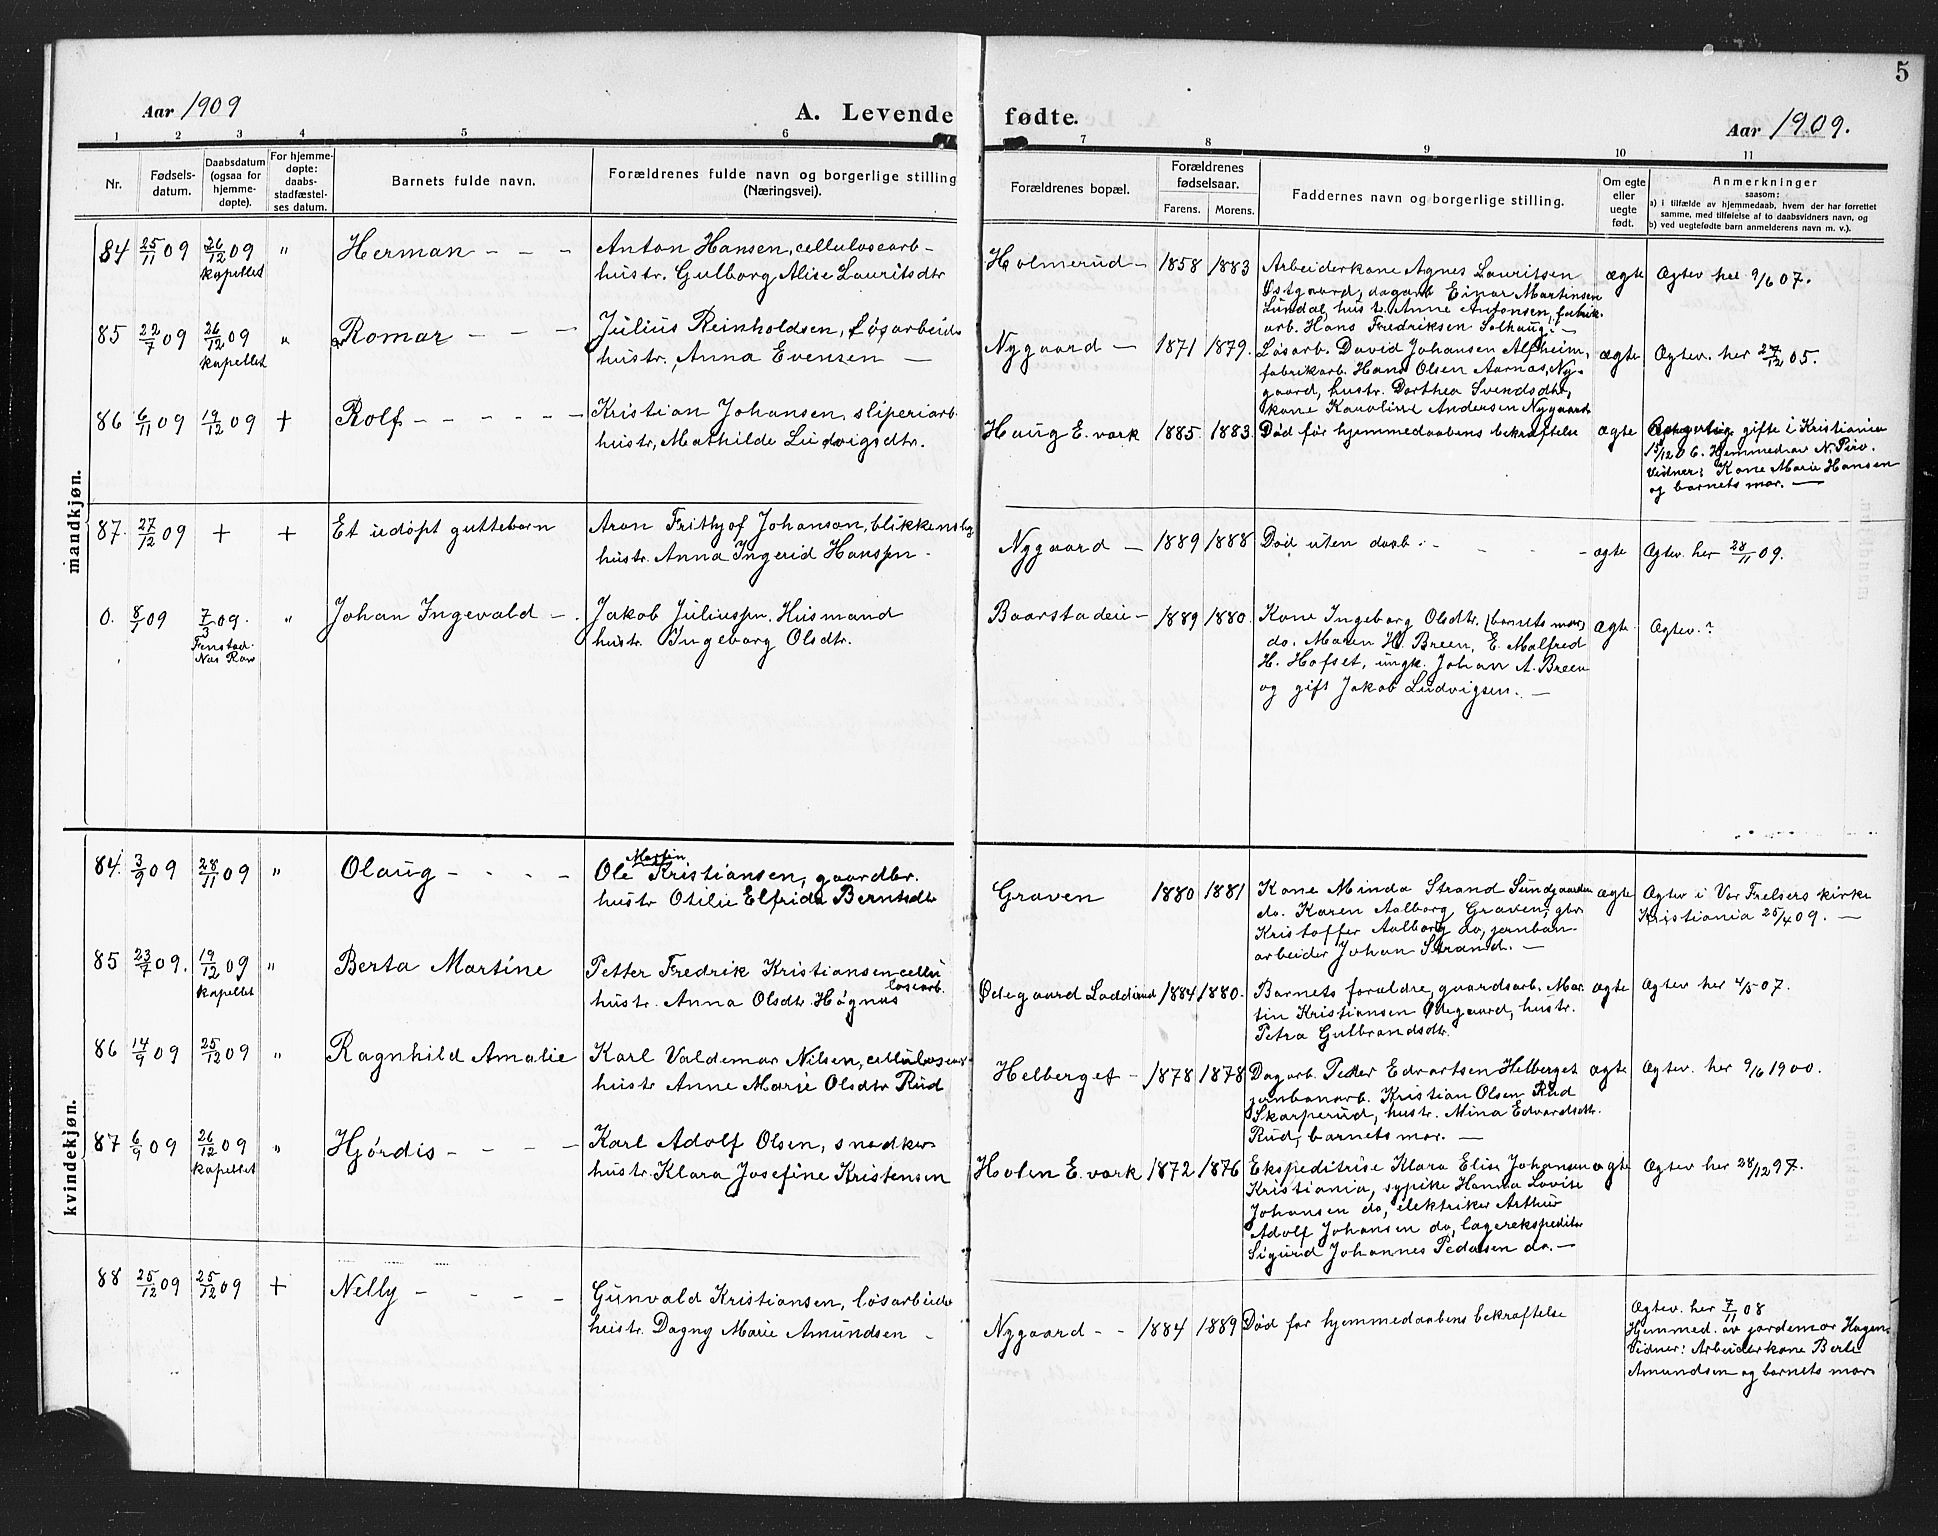 5
Aar 1909
A. Levende fødte.
Aar 1909.
1 2 3 4 5 6 7 8 9 10 11
Nr.
Fødsels-
datum.
Daabsdatum
(ogsaa for
hjemme-
døpte).
For hjemme-
døpte:
daabs-
stadfæstel-
ses datum.
Barnets fulde navn.
Forældrenes fulde navn og borgerlige stilling
(Næringsvei).
Forældrenes bopæl.
Forældrenes
fødselsaar.
Farens. Morens.
Faddernes navn og borgerlige stilling.
Om egte
eller
uegte
født.
Anmerkninger
saasom:
a) i tilfælde av hjemmedaab, hvem der har forrettet
samme, med tilføielse af to daabsvidners navn, og
b) ved uegtefødte barn anmelderens navn m. v.).
mandkjøn.
84 25/11 09 26/12 09 kapellet " Herman - - -
Anton Hansen, cellulosearb-
hustr. Gulborg Alise Lauritsdtr
Holmerud - 1858 1883
Arbeiderkone Agnes Lauritsen
Østgaard, dagarb Einar Martinsen
Lundal, hustr. Anne Antonsen, fabrik-
arb. Hans Fredriksen Solhaug. -
ægte
Ægtev her 9/6 07.
85 22/7 09 26/12 09 kapellet " Romar - - -
Julius Reinholdsen, Løsarbeide
hustr, Anna Evensen -
Nygaard - 1871 1879.
Løsarb. David Johansen Alfheim,
fabrikarb. Hans Olsen Aarnas, Ny-
gaard, hustr. Dorthea Svendsdtr,
kone Karoline Andersen Nygaard
ægte
Ægtev. her 27/12 05.
86 6/11 09 19/12 09 + Rolf - - - - -
Kristian Johansen, sliperiarb.
hustr, Mathilde Ludvigsdtr.
Haug E. værk 1885. 1883.
Død før hjemmedaabens bekræftelse
ægte
Borgerlig gifte i Kristiania
15/12 06. Hjemmedøv N. Piro.
Vidner: Kone Marie Hansen
og barnets mor. -
87. 27/12 09 + + Et udøpt guttebarn
Aron Frithjof Johanson, blikkenslag
hustr. Anna Ingerid Hanssen -
Nygaard - 1889 1888
Død uten daab. - - - -
ægte
Ægtev. her 28/11 09.
0. 8/1 09 7/3 09. Fenstad. Nes Rom " Johan Ingevald -
Jakob Juliussen. Husmand
hustr. Ingeborg Olsdtr.
Baarstadeie - 1889 1880.
Kone Ingeborg Olsdtr. (barnets mor)
do. Maren H. Breen, E. Malfred
H. Hofset, ungk. Johan A. Breen
og gift Jakob Ludvigsen. -
ægte.
Ægtev.?
kvindekjøn.
84. 3/9 09 28/11 09 " Olaug - - - -
Martin
Ole Kristiansen, gaardbr.
hustr Otilie Elfrida Berntsdtr
Graven 1880 1881
Kone Minda Strand Sundgaarden
do. Karen Aalborg Graven, gbr.
Kristoffer Aalborg do, jernban-
arbeider Johan Strand. -
ægte
Ægtev i Vor Frelsers kirke
Kristiania 25/4 09. -
85 23/7 09. 19/12 09 kapellet " Berta Martine
Petter Fredrik Kristiansen cellu
losearb.
hustr. Anna Olsdtr Høgnas
Ødegaard Lodderud 1884 1880.
Barnets forældre, gaardsarb. Mar-
tin Kristiansen Ødegaard, hustr.
Petra Gulbrandsdtr.
ægte
Ægtev her 4/5 07.
86 14/9 09 25/12 09 " Ragnhild Amalie
Karl Valdemar Nilsen, cellulosearb.
hustr Anne Marie Olsdtr Rud
Helberget - 1878 1878
Dagarb. Peder Edvartsen Helberget
jernbanarb. Kristian Olsen Rud
Skarperud, hustr. Mina Edvardsdtr.
Rud, barnets mor. -
ægte
Ægtev. her 9/6 1900.
87 6/9 09 26/12 09 kapellet " Hjørdis - - - -
Karl Adolf Olsen, snedker
hustr. Klara Josefine Kristensen
Holen E. værk 1872 1876
Ekspeditrise Klara Elise Johansen
Kristiania, sypike Hanna Lovise
Johansen do, elektriker Arthur
Adolf Johansen do, lagerekspeditør
Sigurd Johannes Pedersen do. -
ægte
Ægtev her 28/12 97.
88 25/12 09 25/12 09 + Nelly - - - -
Gunvald Kristiansen, løsarbeider
hustr. Dagny Marie Amundsen -
Nygaard - - 1884 1889
Død før hjemmedaabens bekræftelse
Ægtev. her 7/11 08
Hjemmed. av jordemor Hagen.
Vidner: Arbeiderkone Berte
Amundsen og barnets mor